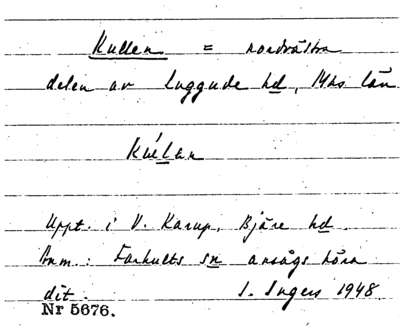 Kullen = nordvästra
delen av Luggude hd, Mhs län
Kúlen
Uppt. i V. Karup, Bjäre hd.
Anm.: Farhults sn ansågs höra
dit. I. Ingers 1948.
Nr 5676.